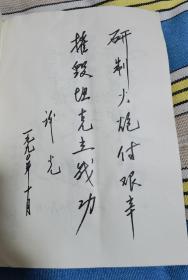 研制火炮付艰辛
摧毁坦克立战功
许光
一九九〇年十月